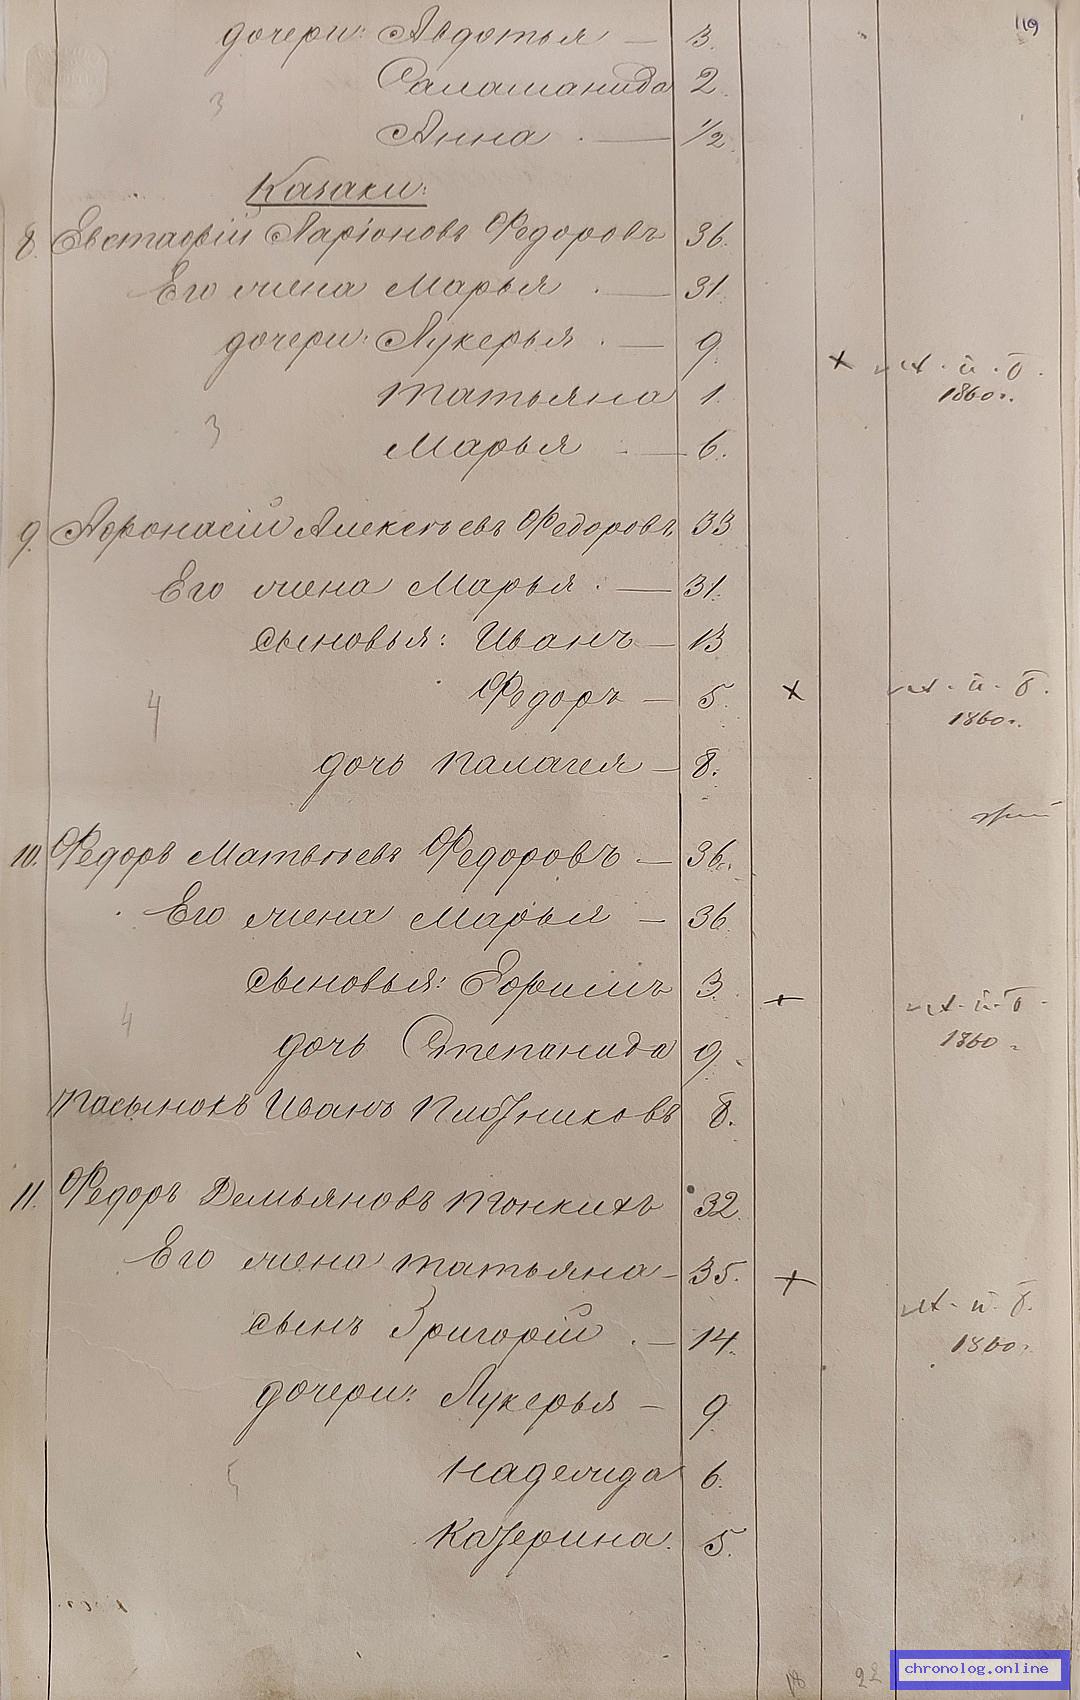 119
дочери: Авдотья — 3.
Саламанида 2.
3
Анна . — 1/2.
Казаки:
8. Евстафій Ларіоновъ Федоровъ 36.
Его жена Марья . — 31
дочери: Лукерья . — 9. + и. б.
Татьяна 1. 1860г.
3
Марья . — 6.
9. Афонасій Алексѣевъ Федоровъ 33
Его жена Марья . — 31.
сыновья: Иванъ — 13
Федоръ — 5. + и. б.
4 1860г.
дочь Палагея — 8.
10. Федоръ Матвѣевъ Федоровъ — 36.
Его жена Марья — 36.
сыновья: Ефимъ 3. + и. б.
4 1860
дочь Степанида 9.
Пасынокъ Иванъ 8.
11. Федоръ Демьяновъ Тонкихъ 32.
Его жена Татьяна — 35. + и. б.
сынъ Григорій . — 14. 1860г.
дочери: Лукерья — 9
5
Надежда 6.
Катерина. 5.
18 22
chronolog.online